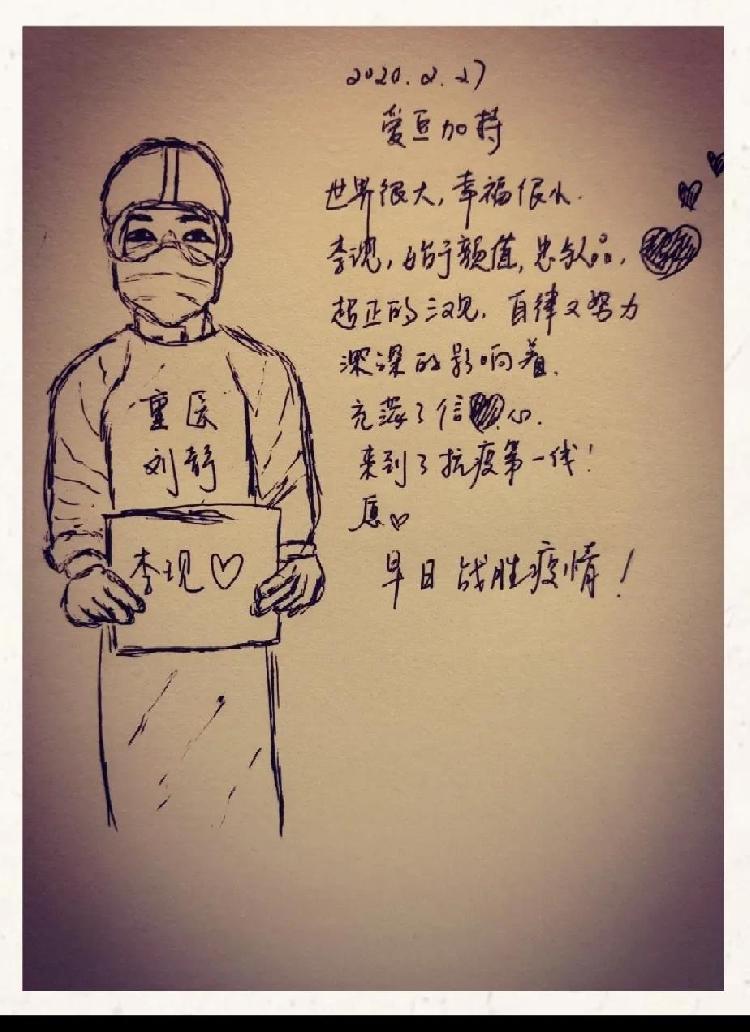 2020.2.27
爱豆加持
世界很大,幸福很小.
李现,始于颜值,忠于人品,
超正的三观,自律又努力
深深的影响着.
充满了信心.
来到了抗疫第一线!
愿♡
早日战胜疫情!
重医
刘静
李现♡